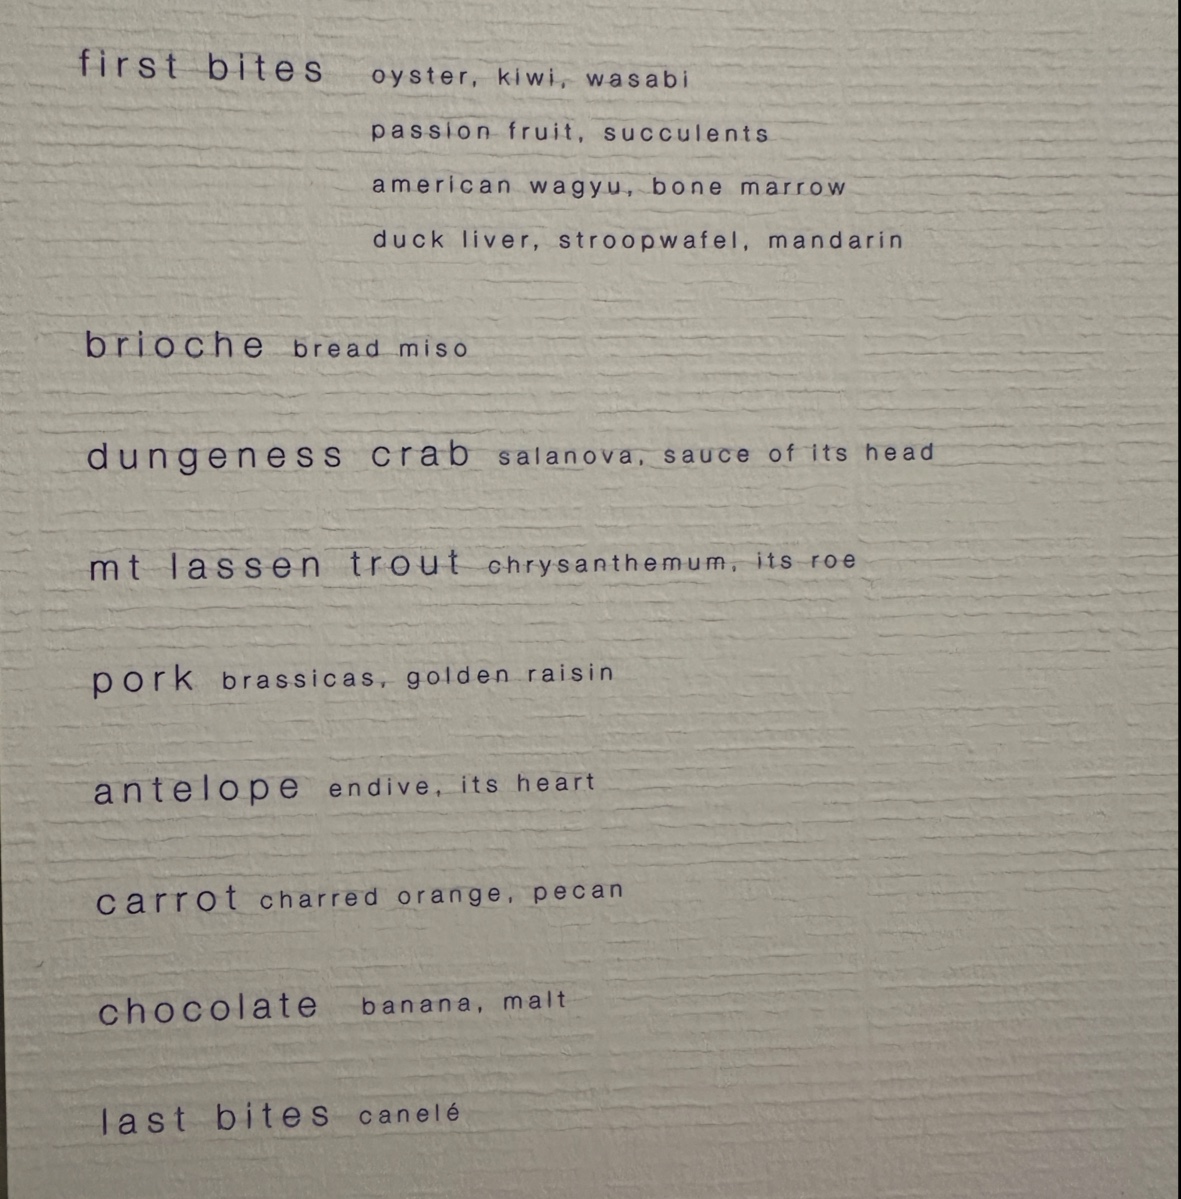 first bites oyster, kiwi, wasabi
passion fruit, succulents
american wagyu, bone marrow
duck liver, stroopwafel, mandarin
brioche bread miso
dungeness crab salanova, sauce of its head
mt lassen trout chrysanthemum, its roe
pork brassicas, golden raisin
antelope endive, its heart
carrot charred orange, pecan
chocolate banana, malt
last bites canelé